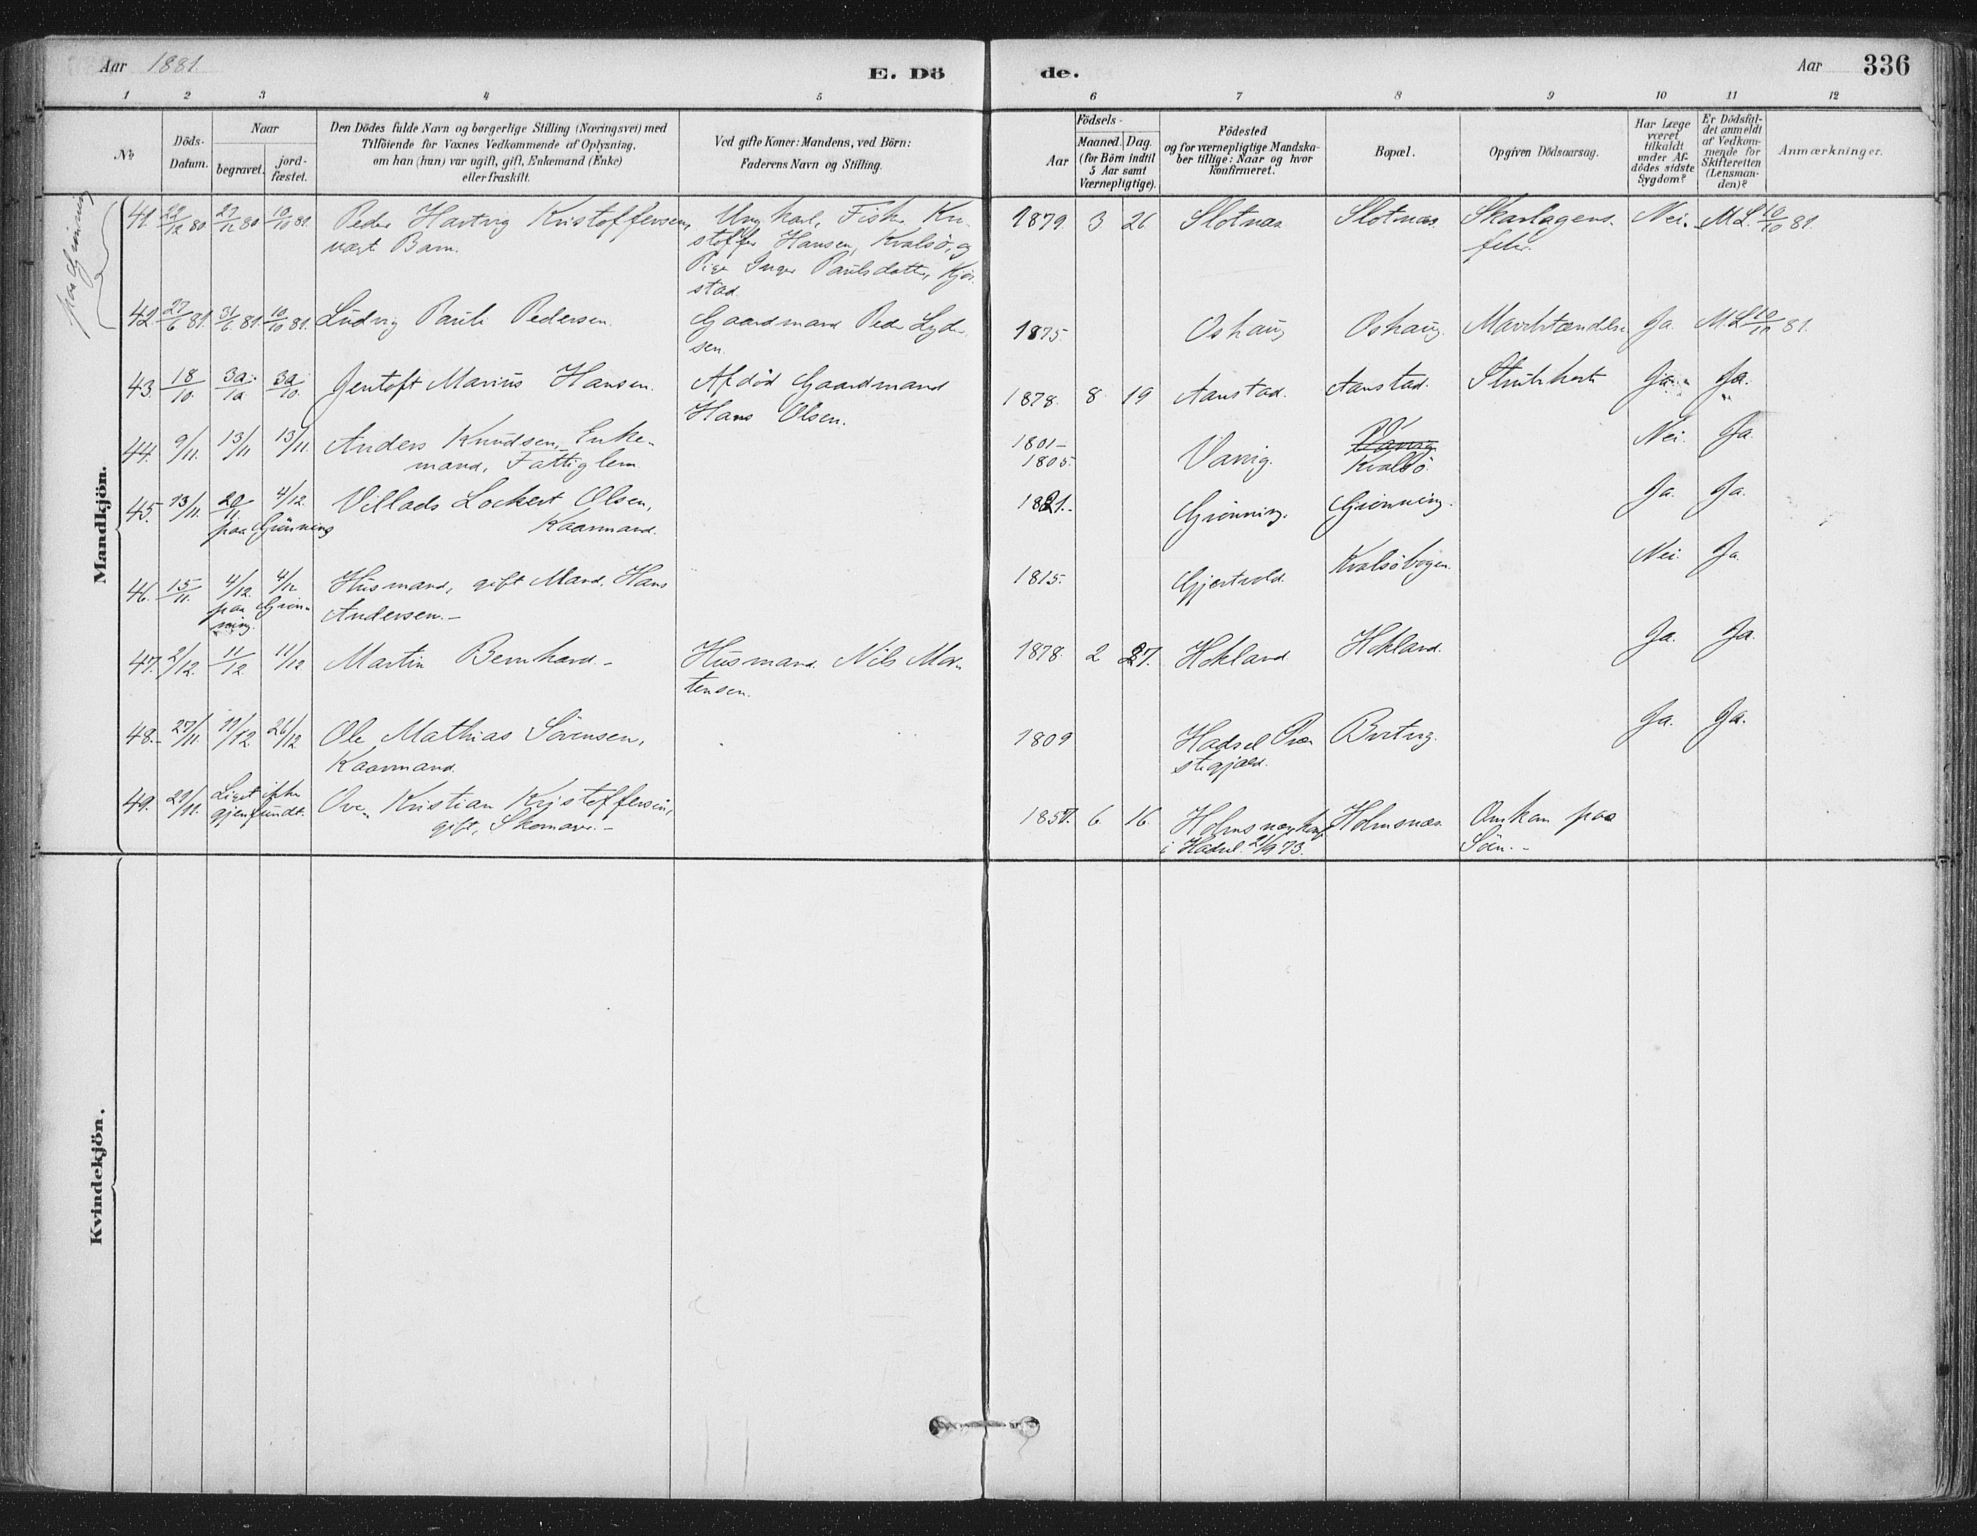 Aar 1881.
E. Dö de.
Aar 336
1 2 3 4 5 6 7 8 9 10 11 12
No
Döds-
Datum.
Naar
begravet.
jord-
fæstet.
Den Dödes fulde Navn og borgerlige Stilling (Næringsvei) med
Tilföiende for Voxnes Vedkommende af Oplysning,
om han (hun) var ugift, gift, Enkemand (Enke)
eller fraskilt.
Ved gifte Koner: Mandens, ved Börn:
Faderens Navn og Stilling.
Födsels-
Aar
Maaned. Dag.
(for Börn indtil
5 Aar samt
Værnepligtige).
Födested
og for værnepligtige Mandska-
ber tillige: Naar og hvor
konfirmeret.
Bopæl.
Opgiven Dödsaarsag.
Har Læge
været
tilkaldt
under Af-
dödes sidste
Sygdom?
Er Dödsfal-
det anmeldt
af Vedkom-
mende for
Skifteretten
(Lensman-
den)?
Anmærkninger.
Mandkjön.
paa Grönning
41. 22/12 80 27/12 80 10/10 81. Peder Hartvig Kristoffersen, Ungkarl, Fisker Kri- 1879. 3 26 Slotnæs Slotnæs. Skarlagens- Nei. M.L. 10/10 81.
uægt Barn. stoffer Hansen, Kvalsö, og feber.
Pige Inger Paulsdatter, Kjör-
stad.
42. 27/6 81. 31/6 81. 10/10 81. Ludvig Pauli Pedersen. Gaardmand Peder Lyder- 1875. Oshaug Oshaug. Ja. M.L. 10/10 81.
sen.
43. 18/10. 30/10 30/10. Gentoft Marius Hansen. Afdød Gaardmand 1878. 8. 19 Aanstad. Aanstad. Strubehoste Ja. Ja.
Hans Olsen.
44. 9/11. 13/11 13/11. Anders Knudsen, Enke- 1801- 1805. Vaavig. Vaavig Nei. Ja.
mand, Fattiglem Kvalsö
45. 13/11. 20/11. 4/12. Villads Lockert Olsen, 1821.- Grönning. Grönning. Ja. Ja.
paa Grönning Kaarmand.
46. 15/11. 4/12. 4/12 Husmand, gift Mand, Hans 1815. Gjertvold. Kvalsöbogen. Nei. Ja.
paa Grön-
ning. Andersen.-
47. 2/12. 11/12 11/12 Martin Bernhard - Husmand Nils Mor- 1878. 2 27. Hokland Hokland. Ja. Ja.
tensen.
48. 27/11 11/12. 26/12 Ole Mathias Sörensen, 1809 Hadsel Præ- Ja. Ja.
Kaarmand. stegjæld.
49. 29/11. Liget ikke Ove Kristian Kristoffersen, 1857. 6 16. Holmsnæs Omkom paa
gjenfundt. gift, Skomager.- i Hadsel. 21/9 73. Söen.-
Kvindekjön.